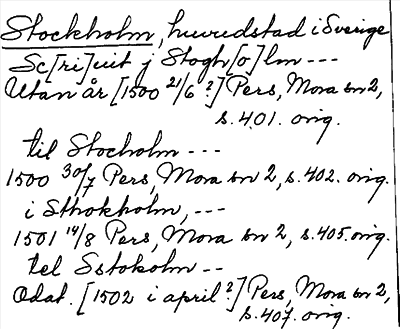 Stockholm, huvudstad i Sverige
Sc[ri]uit j Stogh[o]lm ---
Utan år [1500 21/6 ?] Pers, Mora bn 2,
s. 401. orig.
til Stocholm ---
1500 30/7 Pers, Mora bn 2, s. 402. orig.
i Sthokholm, ---
1501 14/8 Pers, Mora bn 2, s. 405. orig.
tel Sstokolm --
Odat. [1502 i april ?] Pers, Mora bn 2,
s. 407. orig.